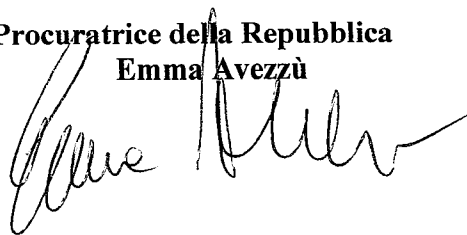 Procuratrice della Repubblica
Emma Avezzù